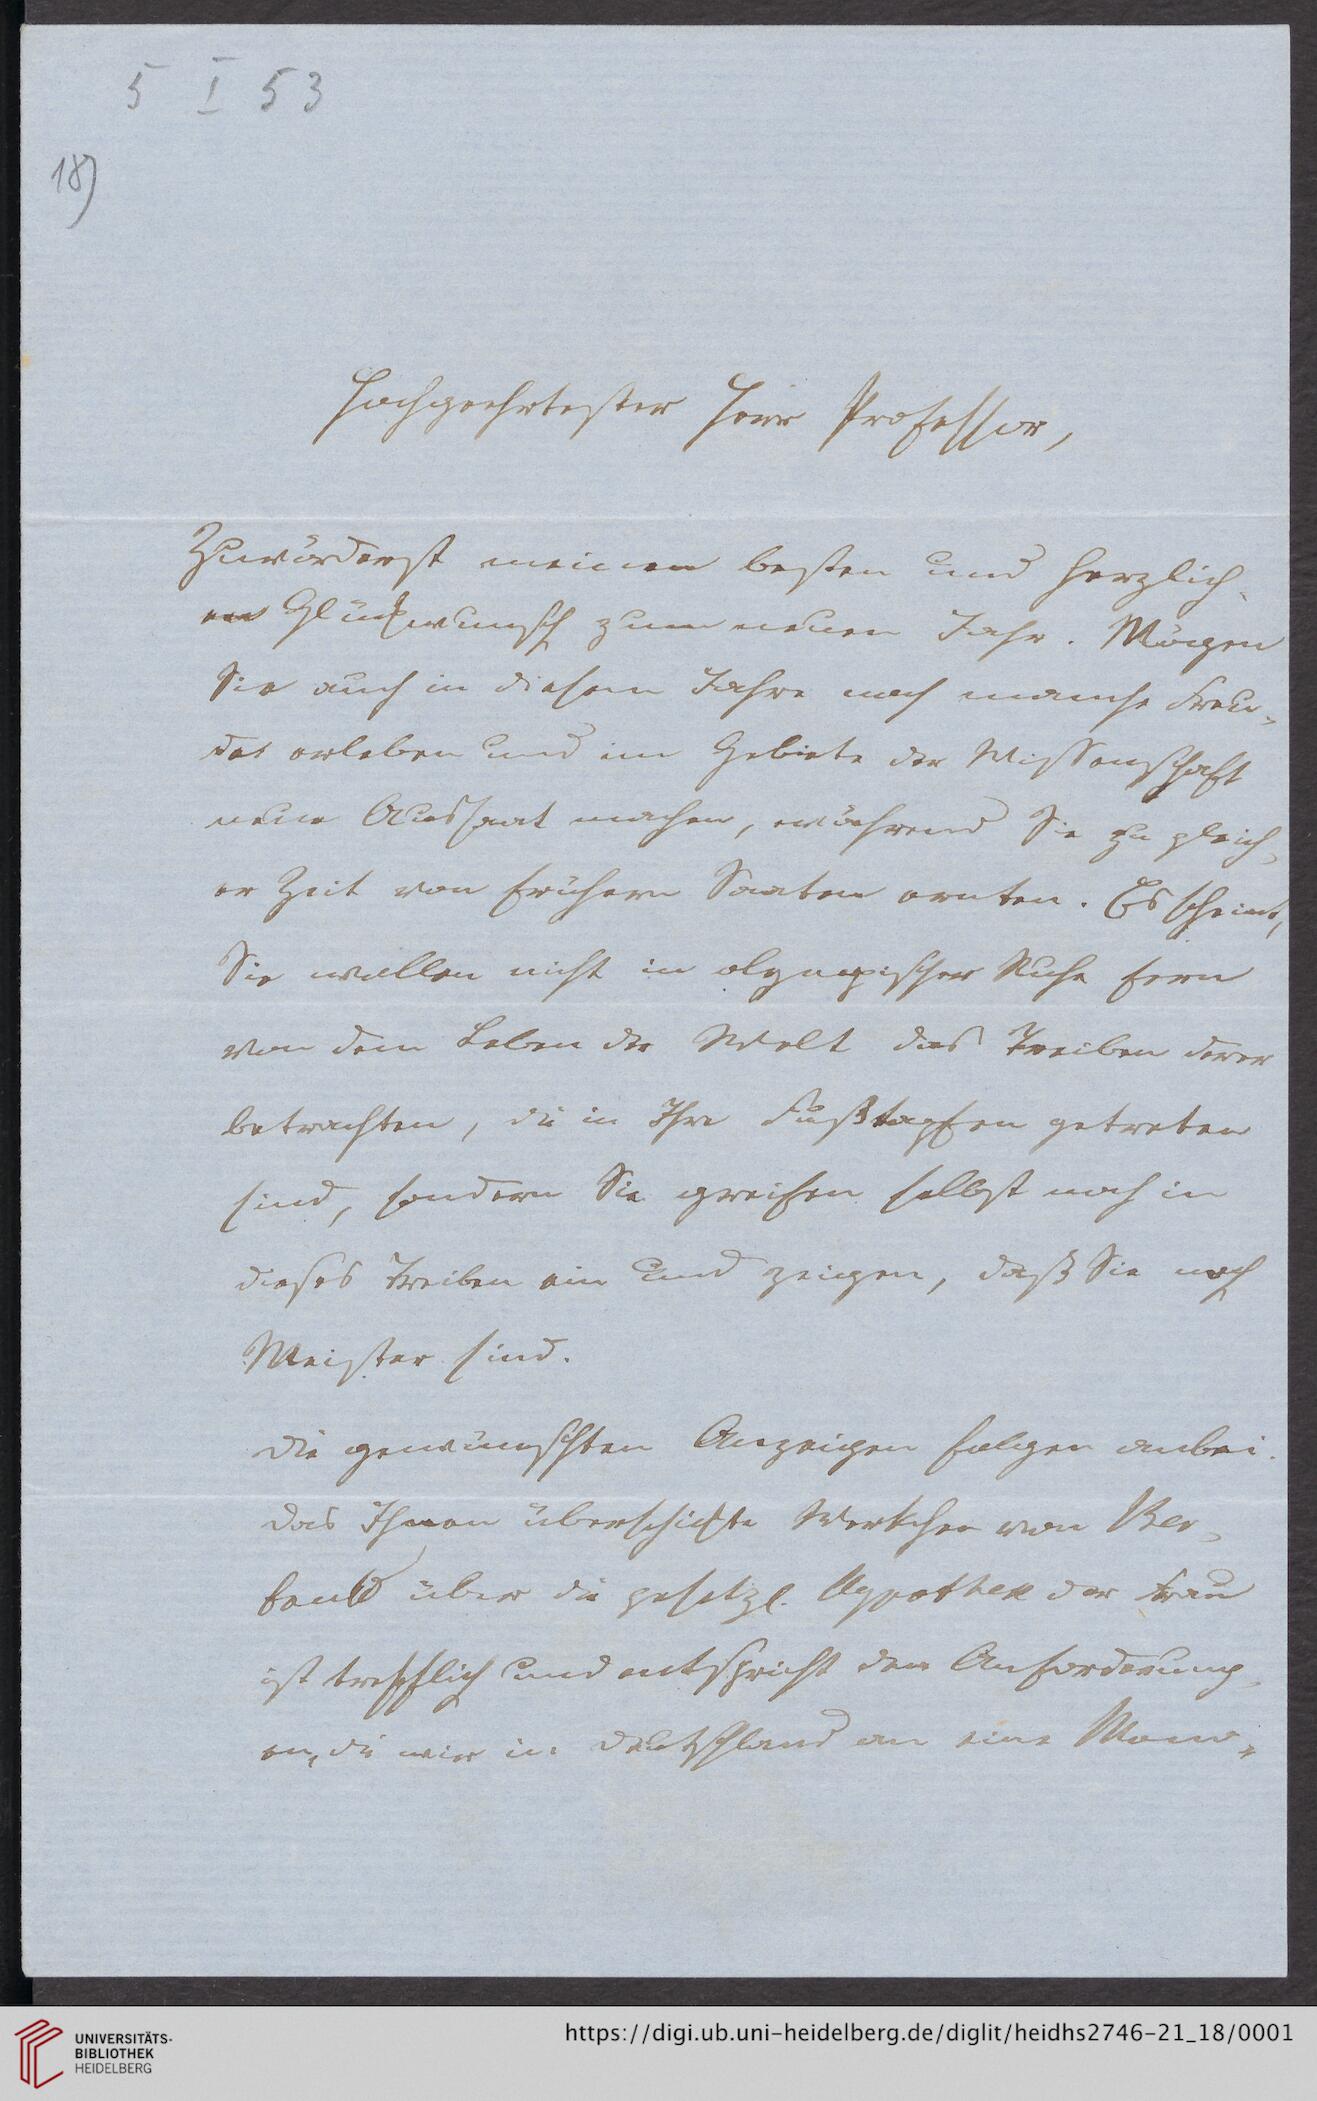 5 I 53
18)
Hochgeehrtester Herr Professor,
Zuvörderst meinen besten und herzlich-
en Glückwunsch zum neuen Jahr. Mögen
Sie auch in diesem Jahre noch manche Freu-
des erleben und im Gebiete der Wissenschaft
neue Aussaat machen, während Sie zu gleich-
er Zeit von frühern Saaten ernten. Es scheint,
Sie wollen nicht in olympischer Ruhe fern
von dem Leben der Welt das Treiben derer
betrachten, die in Ihre Fußtapfen getreten
sind, sondern Sie greifen selbst noch in
dieses Treiben ein und zeigen, daß Sie noch
Meister sind.
Die gewünschten Anzeigen folgen anbei.
Das Ihnen überschickte Werkchen von
über die gesetzl. Hypothek der Frau
ist trefflich und entspricht den Anforderung-
en, die wir in Deutschland an eine Mono-
UNIVERSITÄTS-
BIBLIOTHEK
HEIDELBERG
https://digi.ub.uni-heidelberg.de/diglit/heidhs2746-21_18/0001